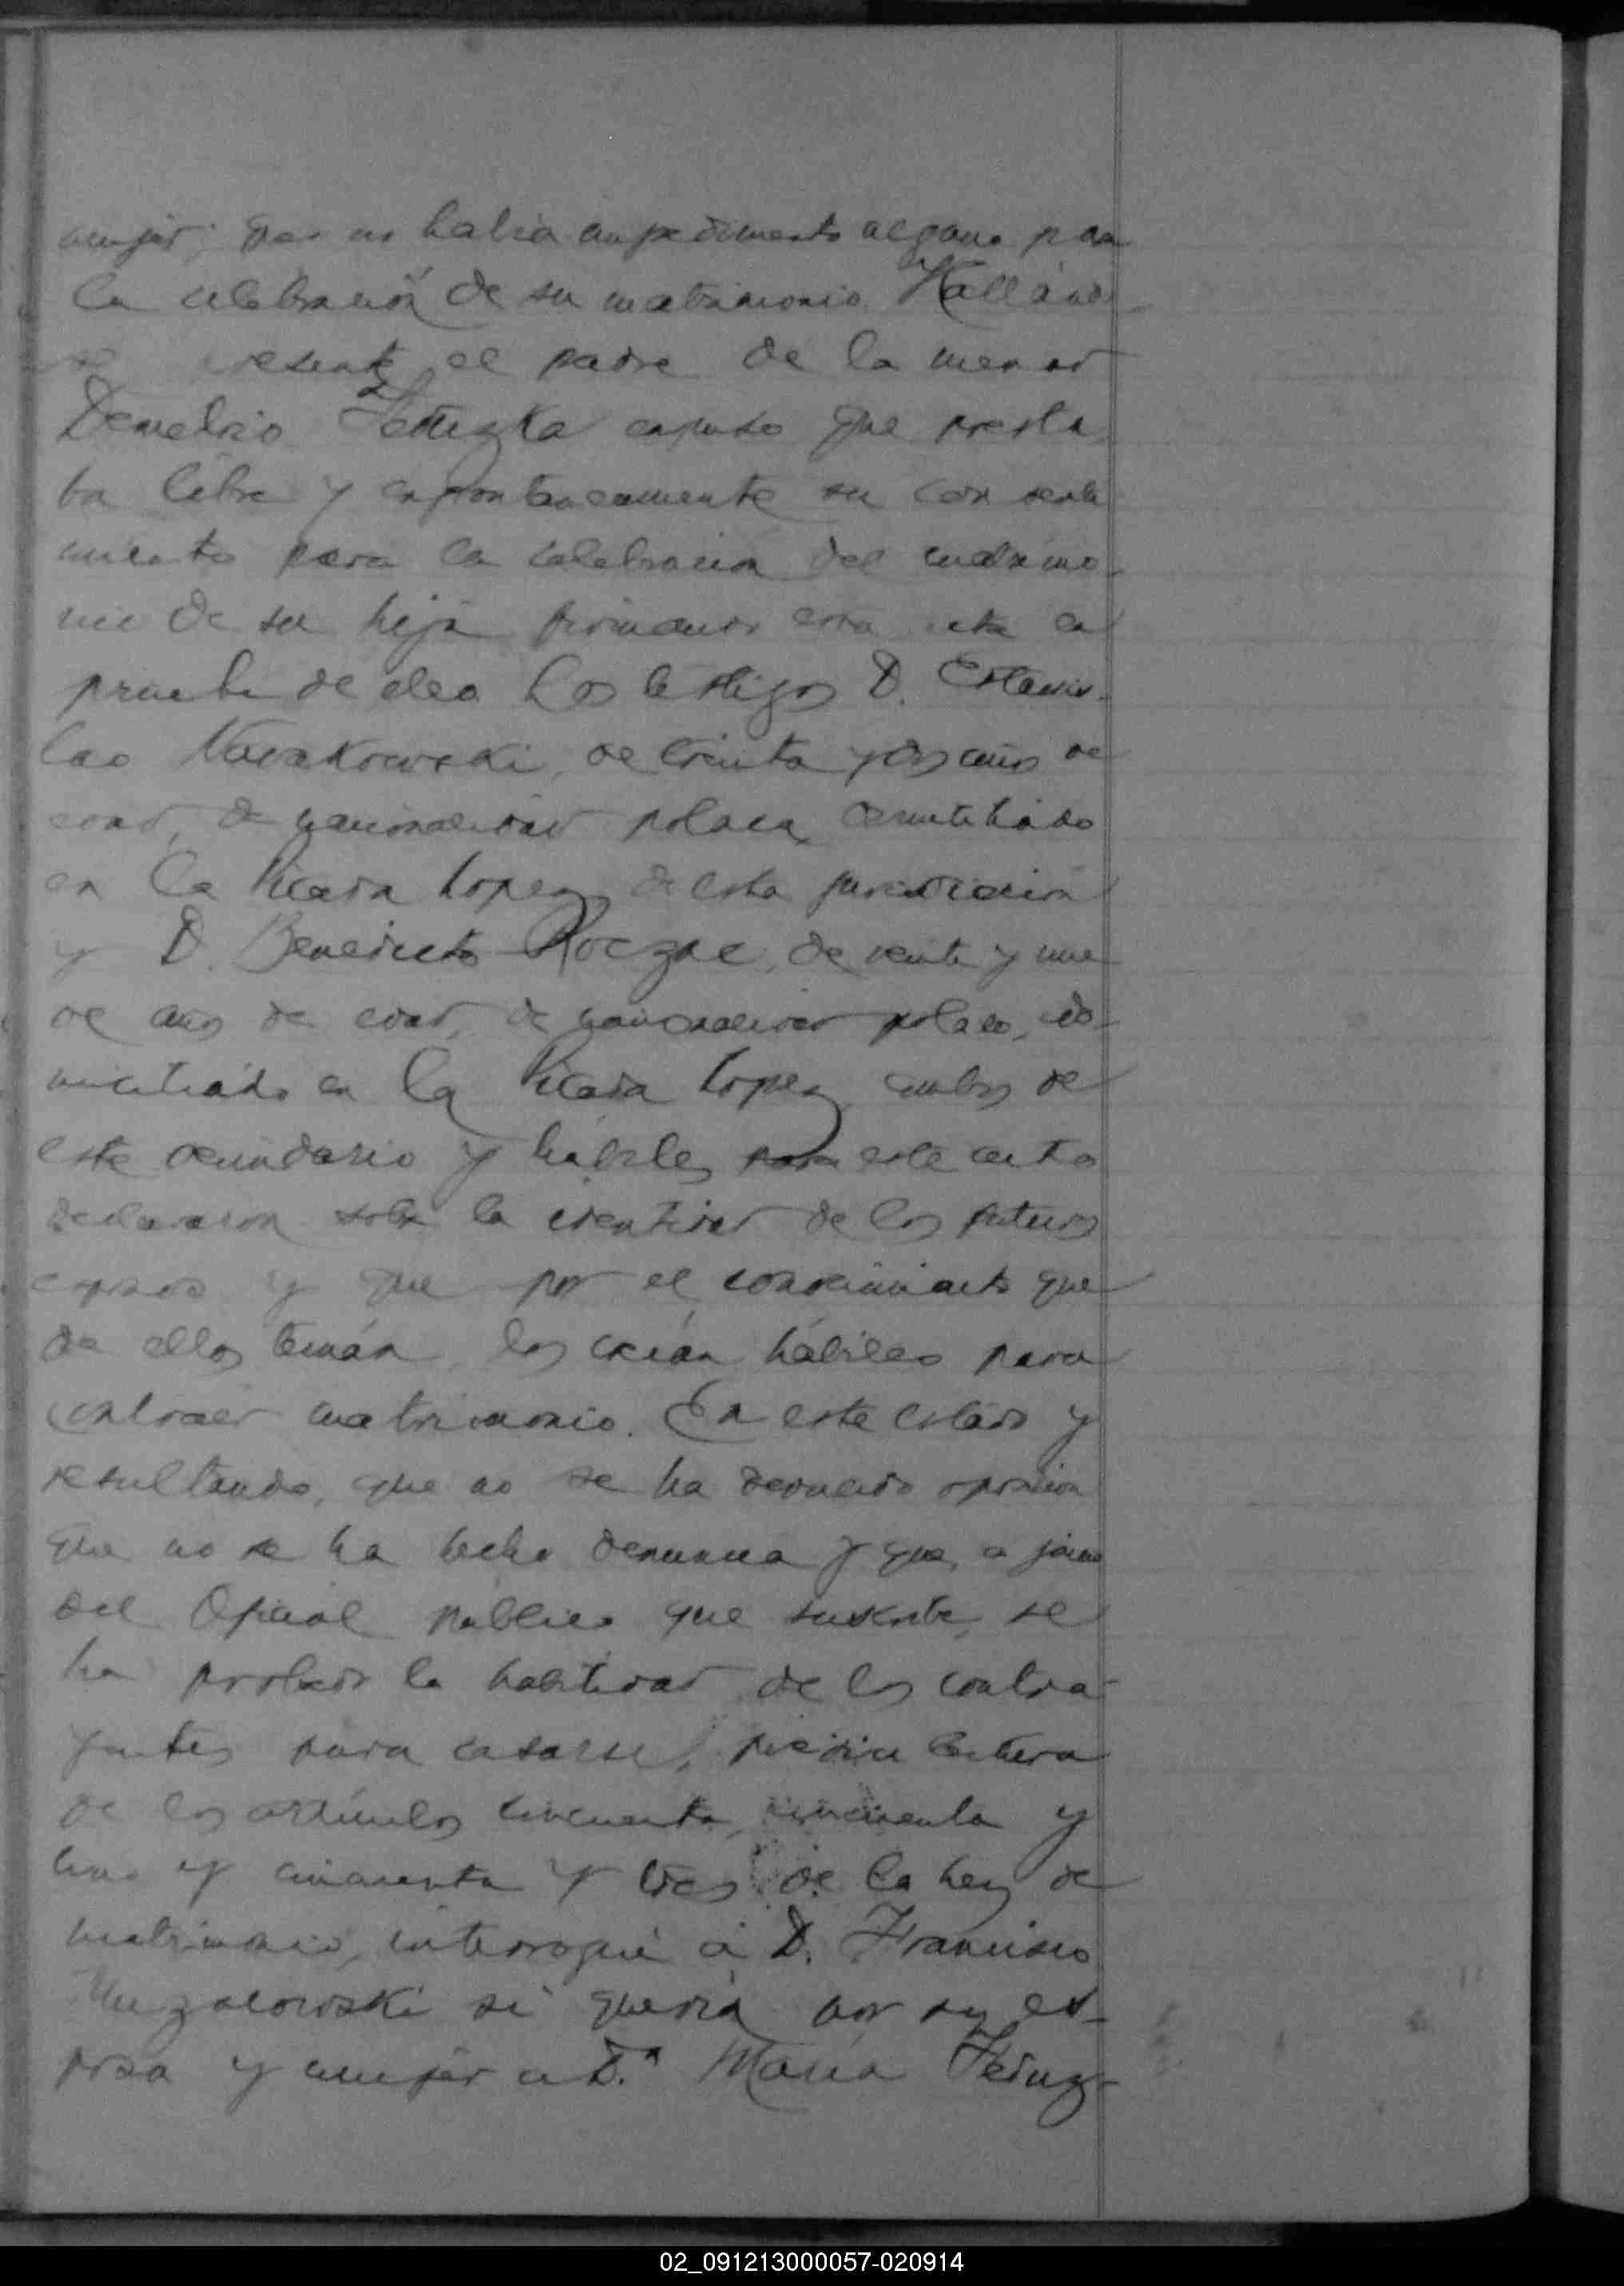 mujer; que no habia impedimento alguno para
la celebración de su matrimonio. Hallándo
se presente el padre de la menor
Demetrio Feduzka expuso que presta
ba libre y espontaneamente su consenti
miento para la celebracion del matrimo
nio de su hija firmando esta acta en
prueba de ello Los testigos D. Estanis-
lao Novakowski, de treinta y dos años de
edad, de nacionalidad polaca, domiciliado
en la Picada Lopez, de esta jurisdicción
y D. Benedicto Roczne, de veinte y nue
ve años de edad, de nacionalidad polaco, do-
miciliado en la Picada Lopez, ambos de
este vecindario y hábiles para este acto
declararon sobre la identidad de los futuros
esposos y que por el conocimiento que
de ellos tenían, los creían hábiles para
contraer matrimonio. En este estado y
resultando, que no se ha deducido oposicion
que no se ha hecho denuncia y que, a juicio
del Oficial público que suscribe, se
ha probado la habilidad de los contra-
yentes para casarse, previa lectura
de los artículos cincuenta, cincuenta y
uno y cincuenta y tres de la Ley de
matrimonio, interrogué á D. Francisco
si queria por su es-
posa y mujer a D.ª María Feduz-
02_091213000057-020914